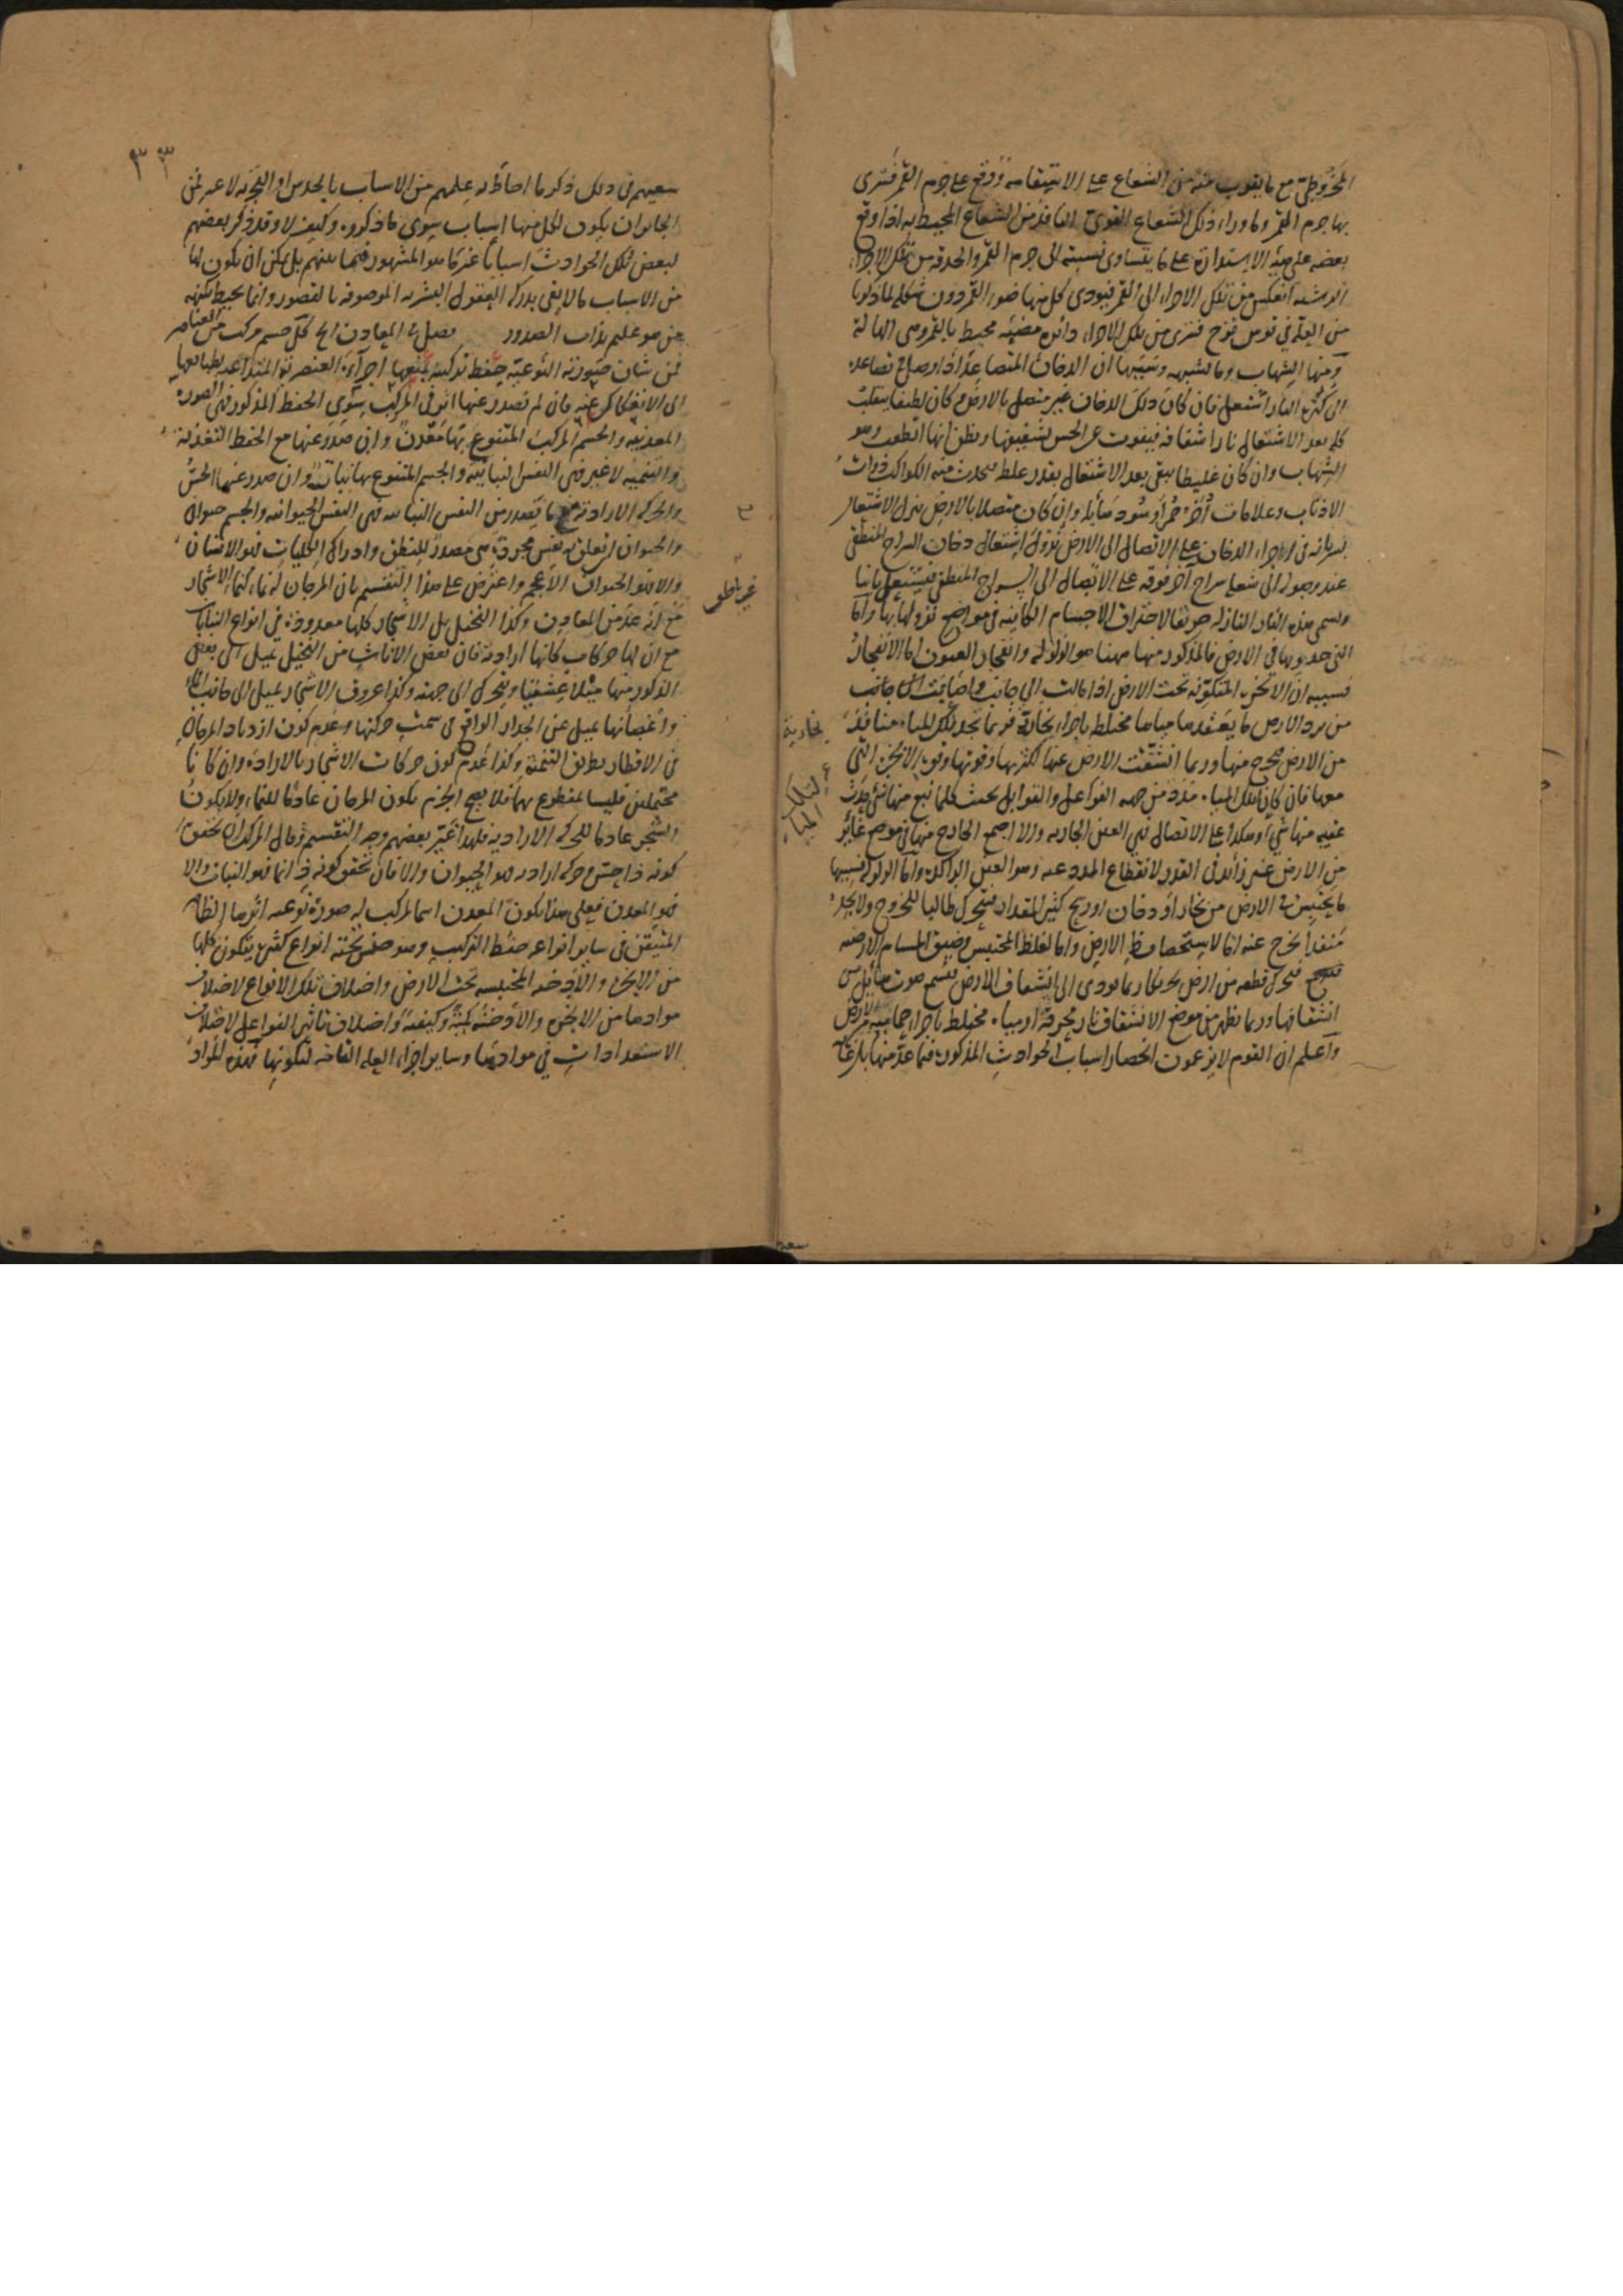 المخروطي مع ما يقرب منه من الشعاع على الاستقامة ووقع على جرم القمر فترى
بها جرم القمر وما وراء ذلك الشعاع القوي النافذ من الشعاع المحيط به اذا وقع
بعضه على هيئة الاستدارة على ما يتساوى نسبته الى جرم القمر والحدقة من تلك الاجزاء
الرشية انعكس من تلك الاجزاء الى القمر فيؤدي كل منها ضوء القمر دون شكله لما ذكرنا
من العلة في قوس قزح فترى من تلك الاجزاء دائرة مضيئة محيط بالقمر وهي الهالة
ومنها الشهاب وما يشبهه وسببها ان الدخان المتصاعد اذا وصل في تصاعده
الى كرة النار اشتعل فان كان ذلك الدخان غير متصل بالارض وكان لطيفا ينقلب
كله بعد الاشتعال نارا شفافة فيفوت عن الحس لشفيفها ويظن انها انطفت وهو
الشهاب وان كان غليظا يبقى بعد الاشتعال بقدر غلظه يحدث منه الكواكب ذوات
الاذناب وعلامات أخر حمر او سود هائلة وان كان متصلا بالارض ينزل الاشتعال
لسريانه في اجزاء الدخان على الاتصال الى الارض نزول اشتعال دخان السراج المنطفي
عند وصوله الى شعلة سراج آخر فوقه على الاتصال الى السراج المنطفي فيشتعل ثانيا
ويسمى هذه النار النازلة حريقا لاحتراق الاجسام الكاينة في مواضع نزولها بها واما
التي حدوثها في الارض فالمذكور منها ههنا هو الزلزلة وانفجار العيون اما الانفجار
فسببه ان الابخرة المتكونة تحت الارض اذا مالت الى جانب واصابت الى جانب
من برد الارض ما يعقدها مياها مختلط باجزاء بخارية فربما تجد تلك المياه منافذ
من الارض يخرج منها وربما انشقت الارض عنها لكثرتها وقوتها وقوة الابخرة التي
معها فان كان لتلك المياه مدد من جهة الفواعل والقوابل بحيث كلما نبع منها شيء حدث
عقيبه منها شيء وهكذا على الاتصال فهي العين الجارية والا اجتمع الخارج منها في موضع غاير
من الارض غير زائد في القدر لانقطاع المدد عنه وهو العين الراكدة واما الزلزلة فسببها
ما يحتبس في الارض من بخار او دخان او ريح كثير المقدار فيتحرك طالبا للخروج ولا يجد
منفذا يخرج عنه اما لاستحصاف الارض واما لغلظ المحتبس وضيق المسام الارضية
فيتحرك قطعة من ارض تحركا ربما يؤدي الى انشقاق الارض فيسمع صوت هايل من
انشقاقها وربما يظهر من موضع الانشقاق نار محرقة او مياه مختلط باجزاء حمائية من الارض
واعلم ان القوم لا يزعمون انحصار اسباب الحوادث المذكورة فيما عد منها بل غاية
بخارية
لتلك
المياه
٣٣
سعيهم في ذلك ذكر ما احاط به علمهم من الاسباب بالحدس او التجربة لا غير فمن
الجائز ان يكون لكل منها اسباب سوى ما ذكروه وكيف لا وقد ذكر بعضهم
لبعض تلك الحوادث اسبابا غير ما هو المشهور فيما بينهم بل يمكن ان يكون لها
من الاسباب ما لا يفي بدركه العقول البشرية الموصوفة بالقصور وانما يحيط بكنهه
من هو عليم بذات الصدور فصل في المعادن الخ كل جسم مركب من العناصر
فمن شان صورته النوعية حفظ تركيبه بمنعها اجزاءه العنصرية المتداعية بطبايعها
الى الانفكاك عنه فان لم تصدر عنها اثر في المركب سوى الحفظ المذكور فهي الصورة
المعدنية والجسم المركب المتنوع بها معدن وان صدر عنها مع الحفظ التغذية
والتنمية لا غير فهي النفس النباتية والجسم المتنوع بها نبات وان صدر عنها الحس
والحركة الارادية مع ما يصدر من النفس النباتية فهي النفس الحيوانية والجسم حيوان
والحيوان ان تعلق به نفس مجردة هي مصدر للنطق وادراك الكليات فهو الانسان
والا فهو الحيوان الاعجم واعترض على هذا التقسيم بان المرجان له نماء كنماء الاشجار
مع انه عد من المعادن وكذا النخيل بل الاشجار كلها معدودة في انواع النبات
مع ان لها حركات كانها ارادية فان بعض الاناث من النخيل تميل الى بعض
الذكور منها ميلا عشقيا ويتحرك الى جهته وكذا عروق الاشجار تميل الى جانب الماء
واغصانها تميل عن الجدار الواقع في سمت حركتها وعدم كون ازدياد المرجان
في الاقطار بطريق التنمية وكذا عدم كون حركات الاشجار بالارادة وان كانا
محتملين فليسا بمقطوع بهما فلا يصح الجزم بكون المرجان عادما للنماء ولا بكون
الشجر عادما للحركة الارادية فلهذا غير بعضهم وجه التقسيم وقال المركب ان تحقق
كونه ذا حس وحركة ارادية فهو الحيوان والا فان تحقق كونه ذا نماء فهو النبات والا
فهو المعدن فعلى هذا يكون المعدن اسما لمركب له صورة نوعية اثرها الظاهر
المتيقن في ساير انواعه حفظ التركيب وهو جنس تحته انواع كثيرة يتكون كلها
من الابخرة والادخنة المحتبسة تحت الارض واختلاف تلك الانواع لاختلاف
موادها من الابخرة والادخنة كمية وكيفية واختلاف تاثير الفواعل لاختلاف
الاستعدادات في موادها وساير اجزاء العلة التامة لتكونها فهذه المواد
غير ناطق